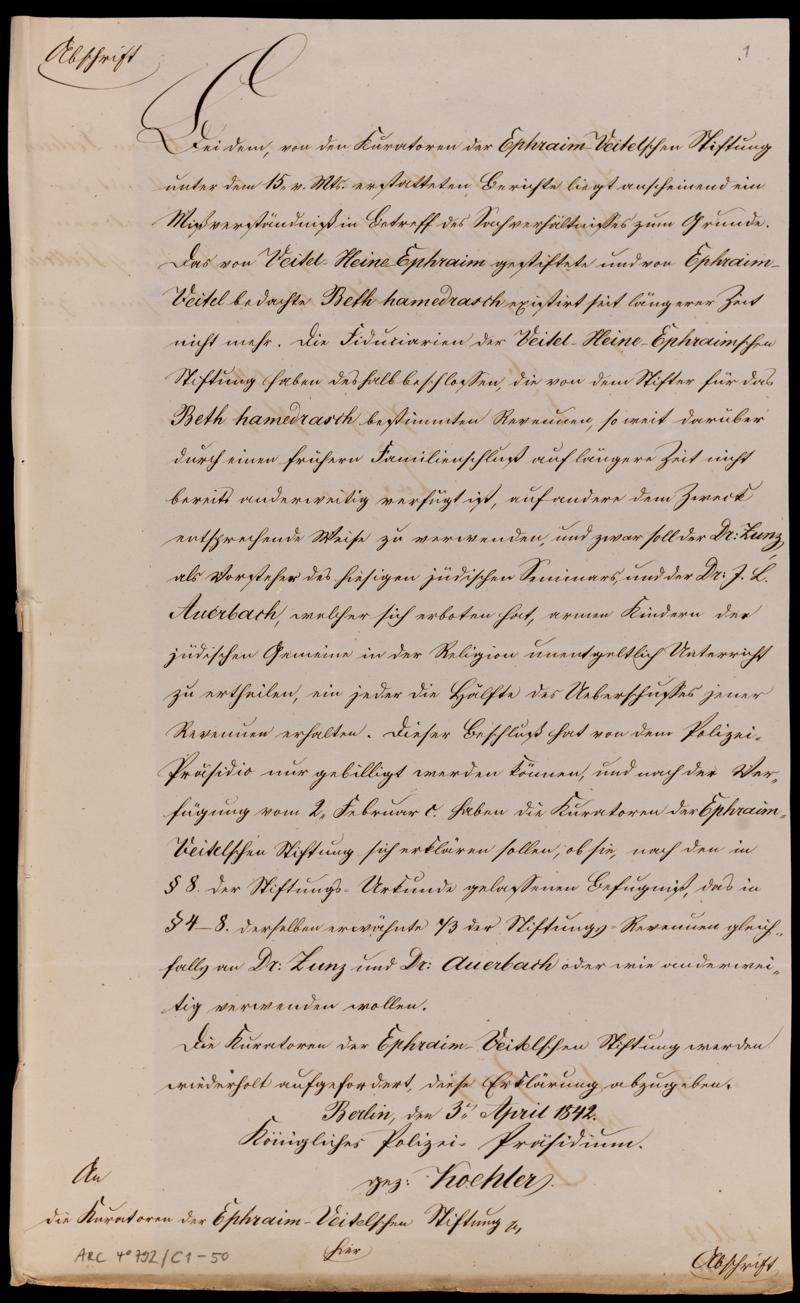 Abschrift
1
Bei dem, von den Kuratoren der Ephraim-Veitelschen Stiftung
unter dem 15. v. Mts. erstatteten Berichte liegt anscheinend ein
Mißverständniß in Betreff des Sachverhältnisses zum Grunde.
Das von Veitel-Heine-Ephraim gestiftete und von Ephraim-
Veitel bedachte Beth hamedrasch existirt seit längerer Zeit
nicht mehr. Die Fiduciarien der Veitel-Heine-Ephraimschen
Stiftung haben deshalb beschlossen, die von dem Stifter für das
Beth hamedrasch bestimmten Revenuen, so weit darüber
durch einen frühern Familienschluß auf längere Zeit nicht
bereits anderweitig verfügt ist, auf andere dem Zweck
entsprechende Weise zu verwenden, und zwar soll der Dr: Zunz,
als Vorsteher des hiesigen jüdischen Seminars, und der Dr: J. L.
Auerbach, welcher sich erboten hat, armen Kindern der
jüdischen Gemeine in der Religion unentgeltlich Unterricht
zu ertheilen, ein jeder die Hälfte des Ueberschusses jener
Revenuen erhalten. Dieser Beschluß hat von dem Polizei-
Präsidio nur gebilligt werden können, und nach der Ver-
fügung vom 2. Februar c. haben die Kuratoren der Ephraim-
Veitelschen Stiftung sich erklären sollen, ob sie, nach den in
§ 8. der Stiftungs-Urkunde gelassenen Befugniß, das in
§ 4-8. derselben erwähnte 1/3 der Stiftungs-Revenuen gleich-
falls an Dr: Zunz und Dr: Auerbach oder wie anderwei-
tig verwenden wollen.
Die Kuratoren der Ephraim-Veitelschen Stiftung werden
wiederholt aufgefordert, diese Erklärung abzugeben.
Berlin, den 3n April 1842.
Königliches Polizei-Präsidium.
gez: Koehler.
An
die Kuratoren der Ephraim-Veitelschen Stiftung
hier
ARC 4° 792/C1-50
Abschrift